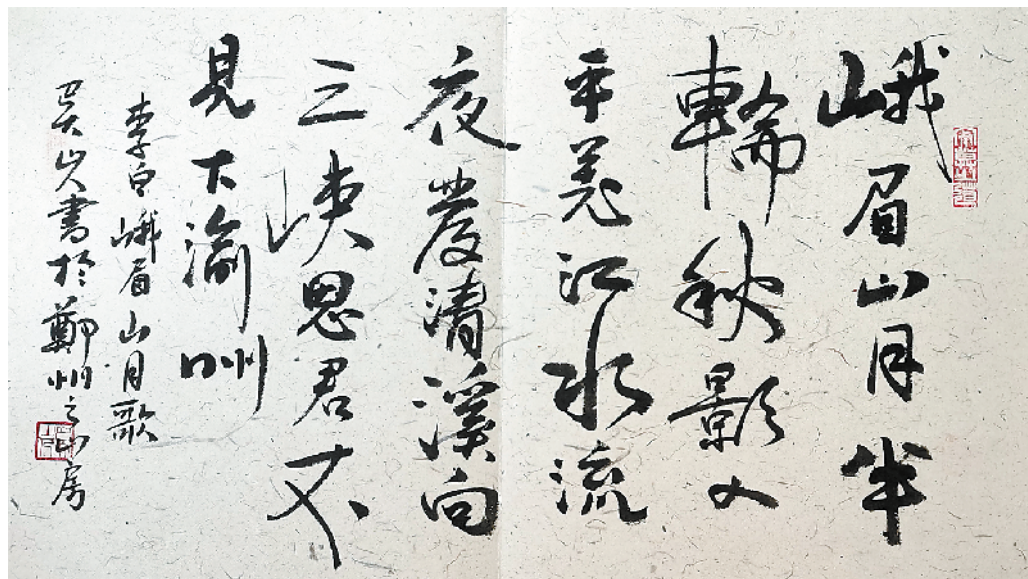 峨眉山月半
輪秋影入
平羌江水流
夜發清溪向
三峽思君不
見下渝州
李白峨眉山月歌
書於鄭州之山房